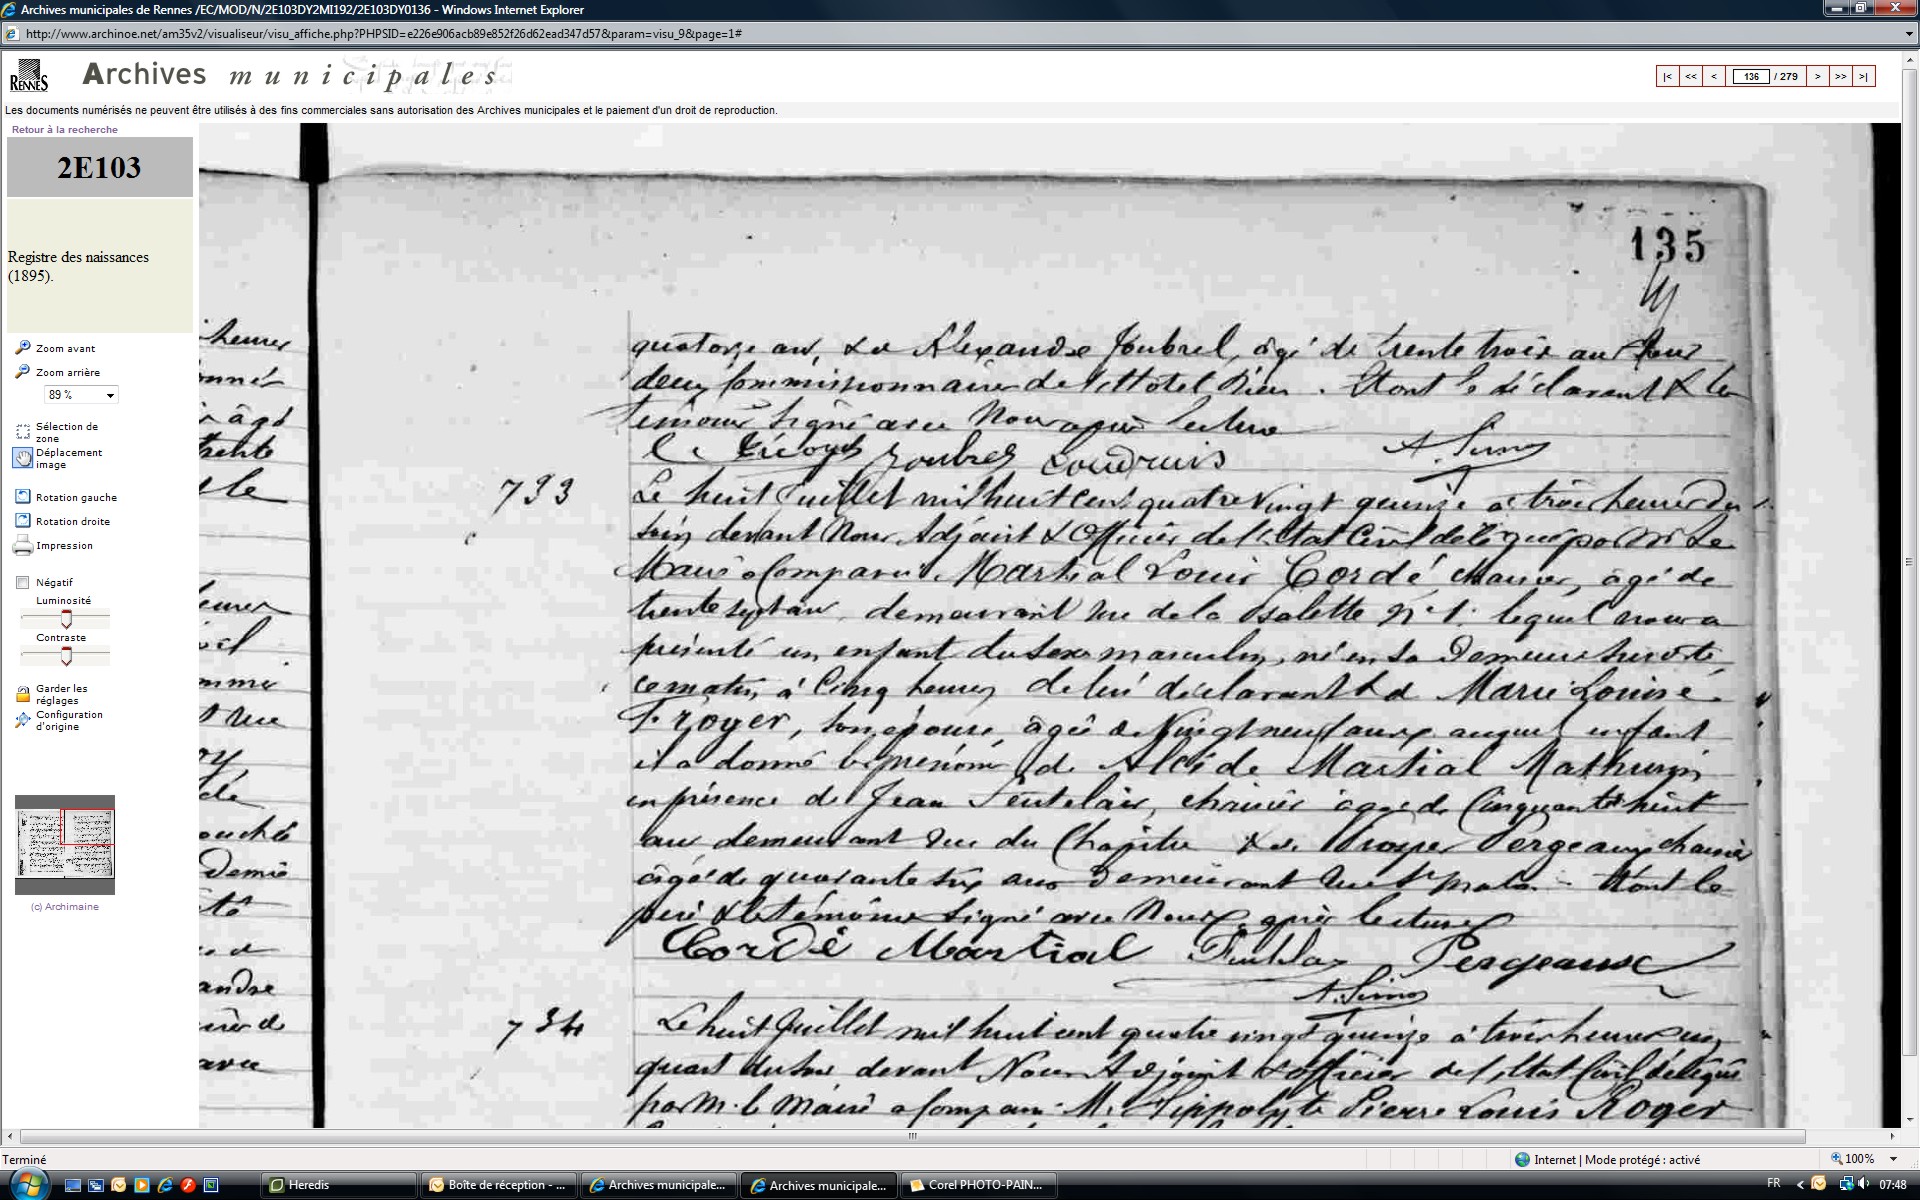 Archives municipales de Rennes /EC/MOD/N/2E103DY2MI192/2E103DY0136 - Windows Internet Explorer
http://www.archinoe.net/am35v2/visualiseur/visu_affiche.php?PHPSID=e226e906acb89e852f26d62ead347d57&param=visu_9&page=1#
RENNES
Archives municipales
|< << < 136 / 279 > >> >|
Les documents numérisés ne peuvent être utilisés à des fins commerciales sans autorisation des Archives municipales et le paiement d'un droit de reproduction.
Retour à la recherche
2E103
Registre des naissances
(1895).
Zoom avant
Zoom arrière
89 %
Sélection de
zone
Déplacement
image
Rotation gauche
Rotation droite
Impression
Négatif
Luminosité
Contraste
Garder les
réglages
Configuration
d'origine
(c) Archimaine
heures
onné
âgé
trente
le
heures
mme
rue
ouché
Demie
andre
135
quatorze ans, & de Alexandre Joubrel, âgé de trente trois ans tous
deux Commissionnaires de l'Hôtel Dieu. Et ont le déclarant & les
témoins signé avec Nous après lecture
Joubrel A. Simon
733
Le huit Juillet mil huit cent quatre vingt quinze à trois heures du
soir, devant Nous Adjoint & Officier de l'Etat Civil délégué par Mr Le
Maire a Comparu Martial Louis Cordé, chaisier, âgé de
trente sept ans, demeurant rue de la Psalette No 1. lequel nous a
présenté un enfant du sexe masculin, né en sa Demeure susdite
ce matin, à Cinq heures, de lui déclarant & de Marie Louise
Froger, son épouse, âgée de Vingt neuf ans, auquel enfant
il a donné les prénoms de Alcide Martial Mathurin
en présence de Jean, chaisier âgé de Cinquante huit
ans demeurant rue du Chapitre & de Prosper Pergeaux chaisier
âgé de quarante six ans Demeurant rue St Malo - Et ont le
père & les témoins signé avec Nous, après lecture
Cordé Martial Pergeaux
A. Simon
734
Le huit Juillet mil huit cent quatre vingt quinze à trois heures un
quart du soir devant Nous Adjoint & officier de l'Etat Civil délégué
par M. le Maire a Comparu M. Hippolyte Pierre Louis Roger
Terminé
Internet | Mode protégé : activé
100%
Heredis
Boîte de réception - ...
Archives municipale...
Archives municipale...
Corel PHOTO-PAIN...
FR
07:48